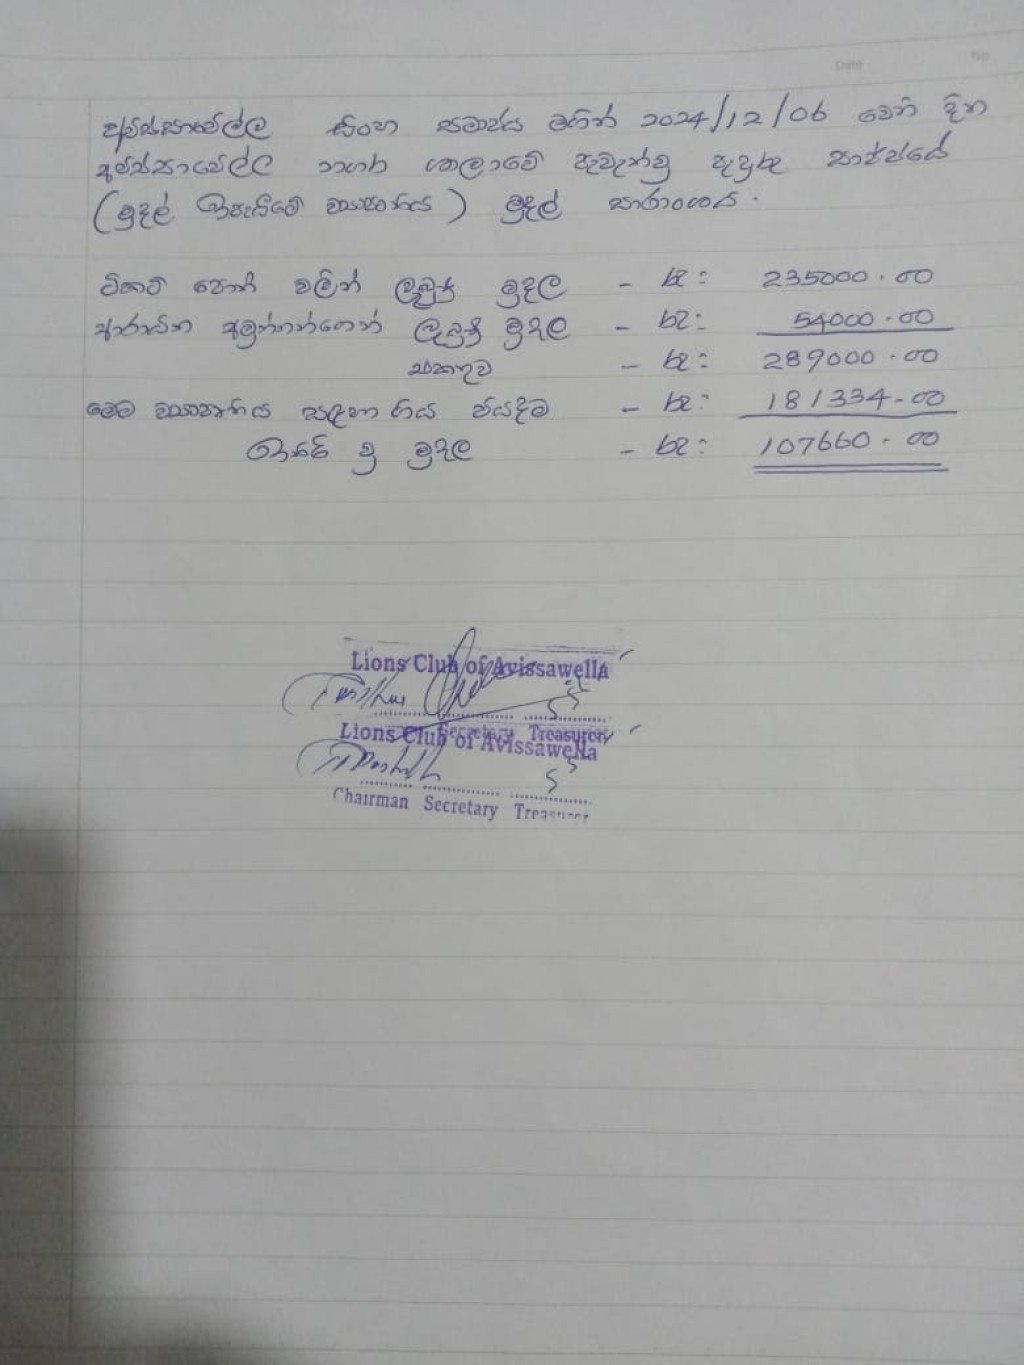 Date No
අවිස්සාවේල්ල සිංහ සමාජය මගින් 2024/12/06 වෙනි දින
අවිස්සාවේල්ල නගර ශාලාවේ පැවැත්වූ ඇඳුරු සාජ්ජයේ
(මුදල් ඉපැයීමේ ව්‍යාපෘතිය) මුදල් සාරාංශය.
ටිකට් පොත් වලින් ලැබුනු මුදල - රු: 235000.00
ආරාධිත අමුත්තන්ගෙන් ලැබුනු මුදල - රු: 54000.00
එකතුව - රු: 289000.00
මෙම ව්‍යාපෘතිය සඳහා ගිය වියදම - රු: 181334.00
ඉතිරි වූ මුදල - රු: 107660.00
Lions Club of Avissawella
Secretary Treasurer
Lions Club of Avissawella
Chairman Secretary Treasurer